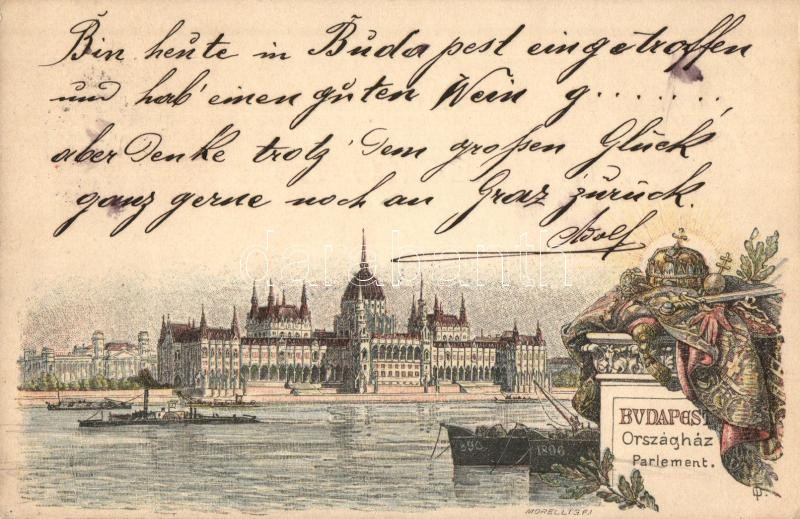 Bin heute in Budapest eingetroffen
und hab' einen guten Wein g.......,
aber denke trotz dem großen Glück
ganz gerne noch an Graz zurück.
Adolf
darabanth
896
1896
BVDAPEST
Országház
Parlement.
MORELLI G. F. I